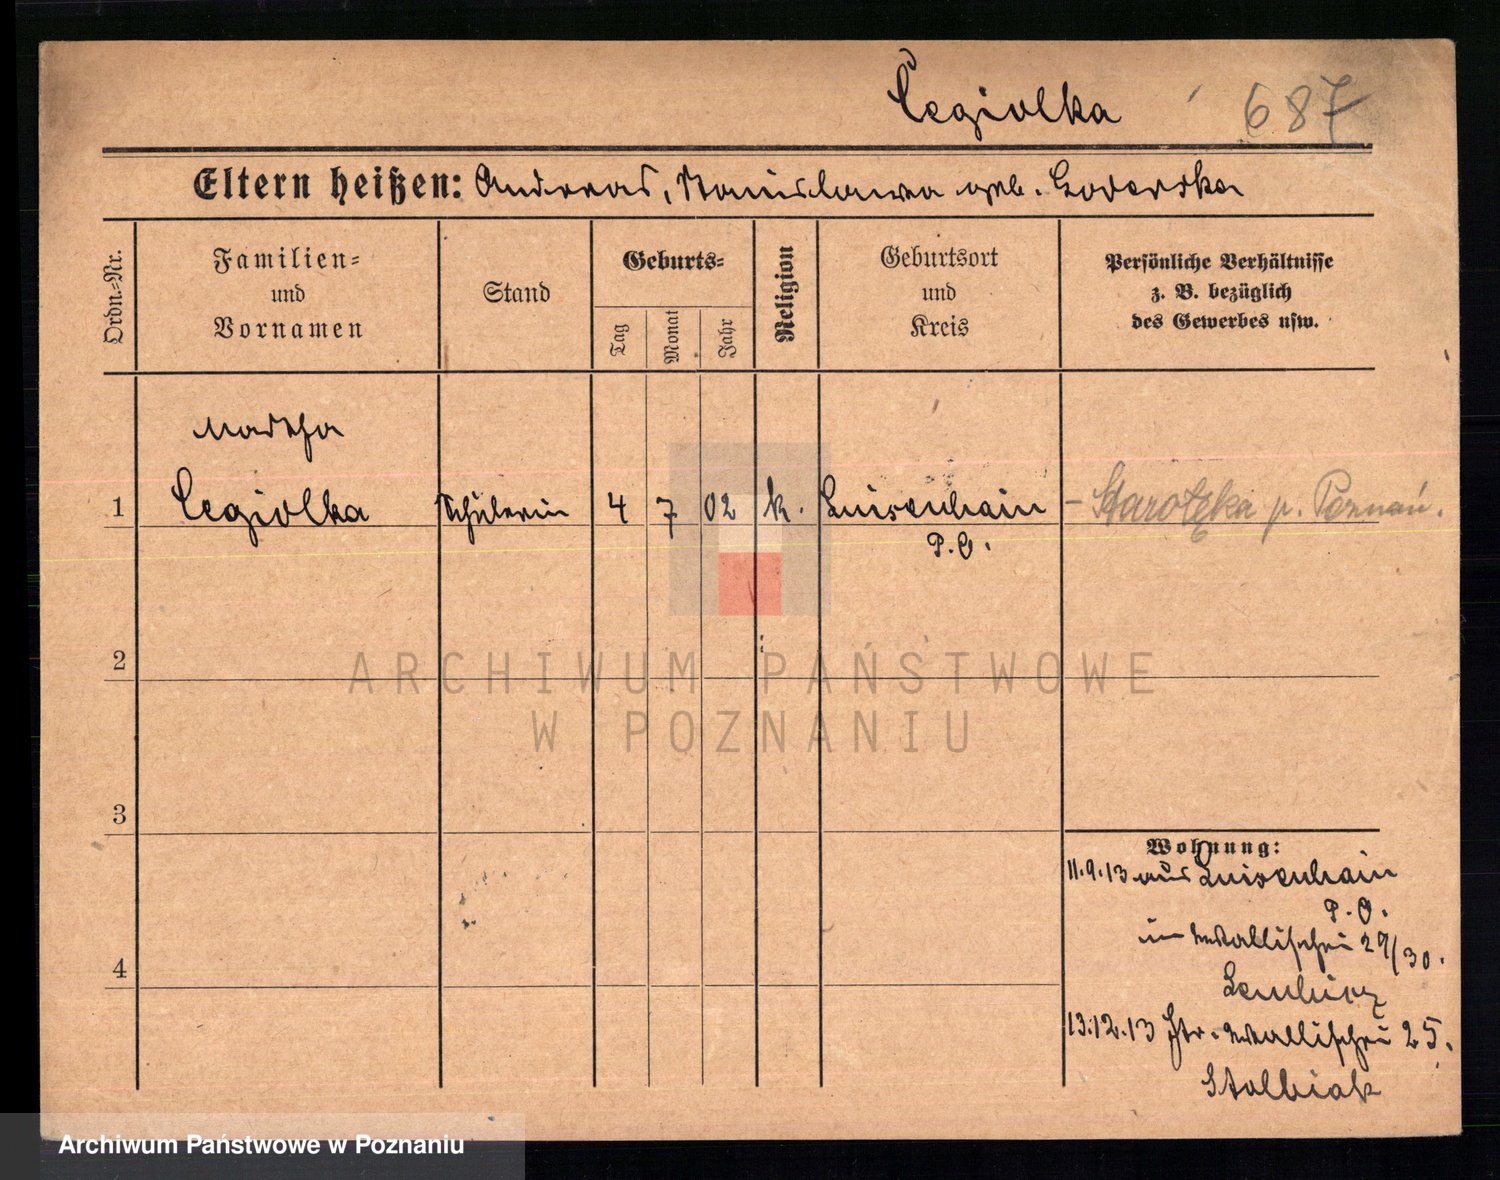 Cegiolka 687
Eltern heißen: Andreas, Stanislawa geb.
Ordn.=Nr.
Familien=
und
Vornamen
Stand
Geburts=
Tag
Monat
Jahr
Religion
Geburtsort
und
Kreis
Persönliche Verhältnisse
z. B. bezüglich
des Gewerbes usw.
Martha
1 Cegiolka Schülerin 4 7 02 k. Luisenhain - Starołęka p. Poznań.
P.O.
2
ARCHIWUM PAŃSTWOWE
W POZNANIU
3
Wohnung:
11.9.13 aus Luisenhain
P.O.
in Wallischei 29/30.
4
13.12.13 Wallischei 25.
Stolbiak
Archiwum Państwowe w Poznaniu